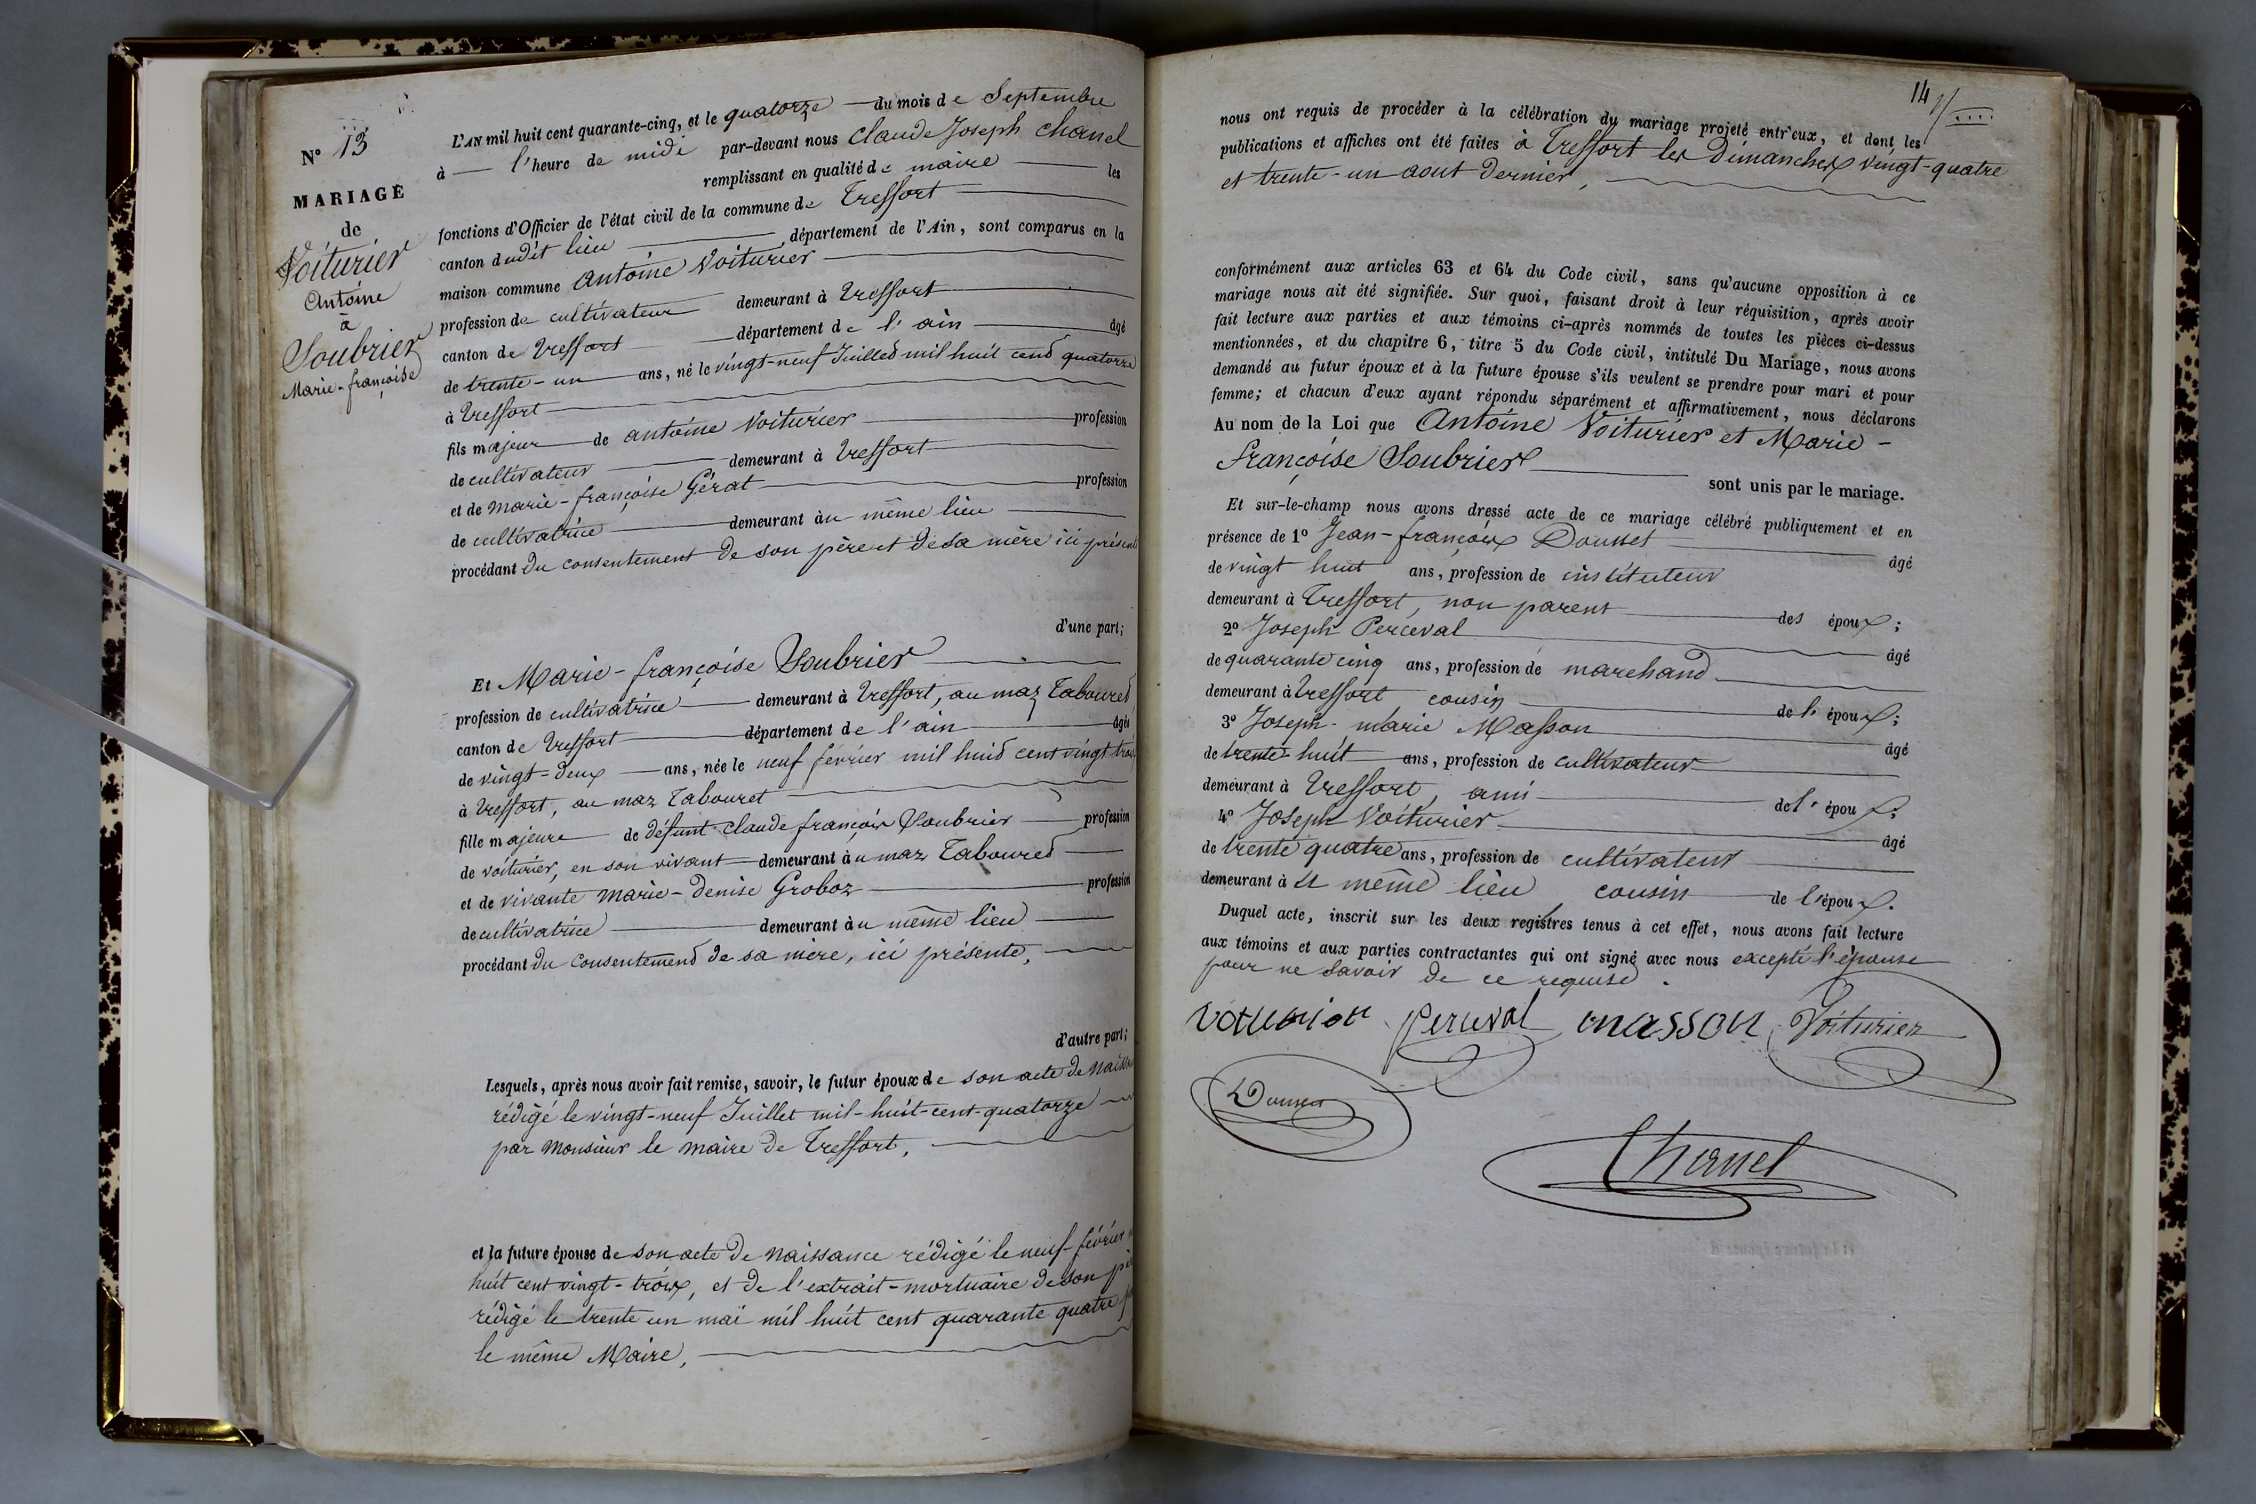 N° 13
MARIAGE
de
Voiturier
Antoine
à
Soubrier
Marie-françoise
L'AN mil huit cent quarante-cinq, et le quatorze du mois de Septembre
à l'heure de midi par-devant nous Claude Joseph Chanel
remplissant en qualité de maire les
fonctions d'Officier de l'état civil de la commune de Treffort
canton dudit lieu département de l'Ain, sont comparus en la
maison commune Antoine Voiturier
profession de cultivateur demeurant à Treffort
canton de Treffort département de l'ain âgé
de trente-un ans, né le vingt-neuf Juillet mil huit cent quatorze
à Treffort
fils majeur de antoine Voiturier profession
de cultivateur demeurant à Treffort
et de marie-françoise Gérat profession
de cultivatrice demeurant au même lieu
procédant du consentement de son père et de sa mère ici présents
d'une part;
Et Marie-françoise Soubrier
profession de cultivatrice demeurant à Treffort, au maz Tabouret
canton de Treffort département de l'ain âgée
de vingt-deux ans, née le neuf février mil huit cent vingt trois
à Treffort, au maz Tabouret
fille majeure de défunt Claude françois Soubrier profession
de voiturier, en son vivant demeurant au maz Tabouret
et de vivante marie-Denise Groboz profession
de cultivatrice demeurant au même lieu
procédant du consentement de sa mère, ici présente,
d'autre part;
Lesquels, après nous avoir fait remise, savoir, le futur époux de son acte de naiss
rédigé le vingt-neuf Juillet mil-huit-cent-quatorze
par Monsieur le maire de Treffort,
et la future épouse de son acte de naissance rédigé le neuf février
huit cent vingt-trois, et de l'extrait-mortuaire de son
rédigé le trente un mai mil huit cent quarante quatre
le même Maire,
14
nous ont requis de procéder à la célébration du mariage projeté entr'eux, et dont les
publications et affiches ont été faites à Treffort les Dimanches vingt-quatre
et trente-un aout dernier,
conformément aux articles 63 et 64 du Code civil, sans qu'aucune opposition à ce
mariage nous ait été signifiée. Sur quoi, faisant droit à leur réquisition, après avoir
fait lecture aux parties et aux témoins ci-après nommés de toutes les pièces ci-dessus
mentionnées, et du chapitre 6, titre 5 du Code civil, intitulé Du Mariage, nous avons
demandé au futur époux et à la future épouse s'ils veulent se prendre pour mari et pour
femme; et chacun d'eux ayant répondu séparément et affirmativement, nous déclarons
Au nom de la Loi que Antoine Voiturier et Marie-
Françoise Soubrier
sont unis par le mariage.
Et sur-le-champ nous avons dressé acte de ce mariage célébré publiquement et en
présence de 1° Jean-françois Donnet âgé
de vingt huit ans, profession de instituteur
demeurant à Treffort, non parent des époux;
2° Joseph Perceval âgé
de quarante cinq ans, profession de marchand
demeurant à Treffort cousin de l'époux;
3° Joseph-marie Masson âgé
de trente huit ans, profession de cultivateur
demeurant à Treffort, ami de l'époux;
4° Joseph Voiturier âgé
de trente quatre ans, profession de cultivateur
demeurant à même lieu cousin de l'époux.
Duquel acte, inscrit sur les deux registres tenus à cet effet, nous avons fait lecture
aux témoins et aux parties contractantes qui ont signé avec nous excepté l'épouse
pour ne savoir de ce requise.
Perceval masson Voiturier
Chanel